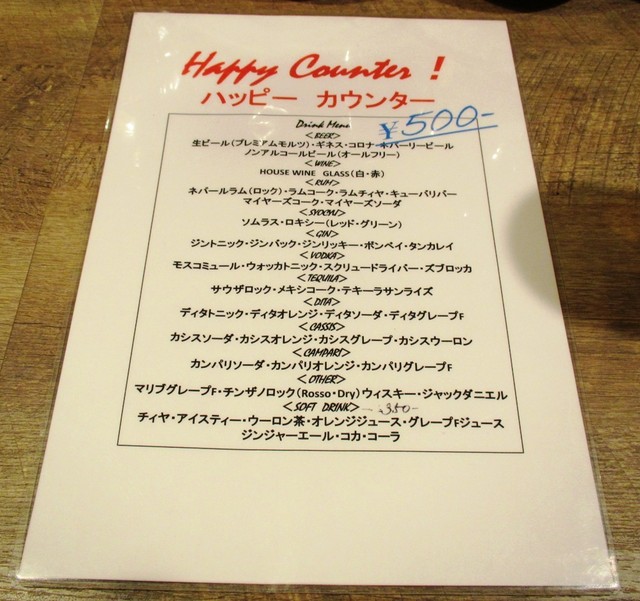 Happy Counter !
ハッピー カウンター
Drink Menu
¥500-
<BEER>
生ビール(プレミアムモルツ)・ギネス・コロナ・ネパーリービール
ノンアルコールビール(オールフリー)
<WINE>
HOUSE WINE GLASS(白・赤)
<RUM>
ネパールラム(ロック)・ラムコーク・ラムチィヤ・キューバリバー
マイヤーズコーク・マイヤーズソーダ
<SYOCYU>
ソムラス・ロキシー(レッド・グリーン)
<GIN>
ジントニック・ジンバック・ジンリッキー・ボンベイ・タンカレイ
<VODKA>
モスコミュール・ウォッカトニック・スクリュードライバー・ズブロッカ
<TEQUILA>
サウザロック・メキシコーク・テキーラサンライズ
<DITA>
ディタトニック・ディタオレンジ・ディタソーダ・ディタグレープF
<CASSIS>
カシスソーダ・カシスオレンジ・カシスグレープ・カシスウーロン
<CAMPARI>
カンパリソーダ・カンパリオレンジ・カンパリグレープF
<OTHER>
マリブグレープF・チンザノロック(Rosso・Dry)ウィスキー・ジャックダニエル
<SOFT DRINK> - 350-
チィヤ・アイスティー・ウーロン茶・オレンジジュース・グレープFジュース
ジンジャーエール・コカ・コーラ